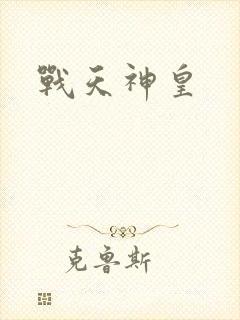 戰天神皇
克魯斯